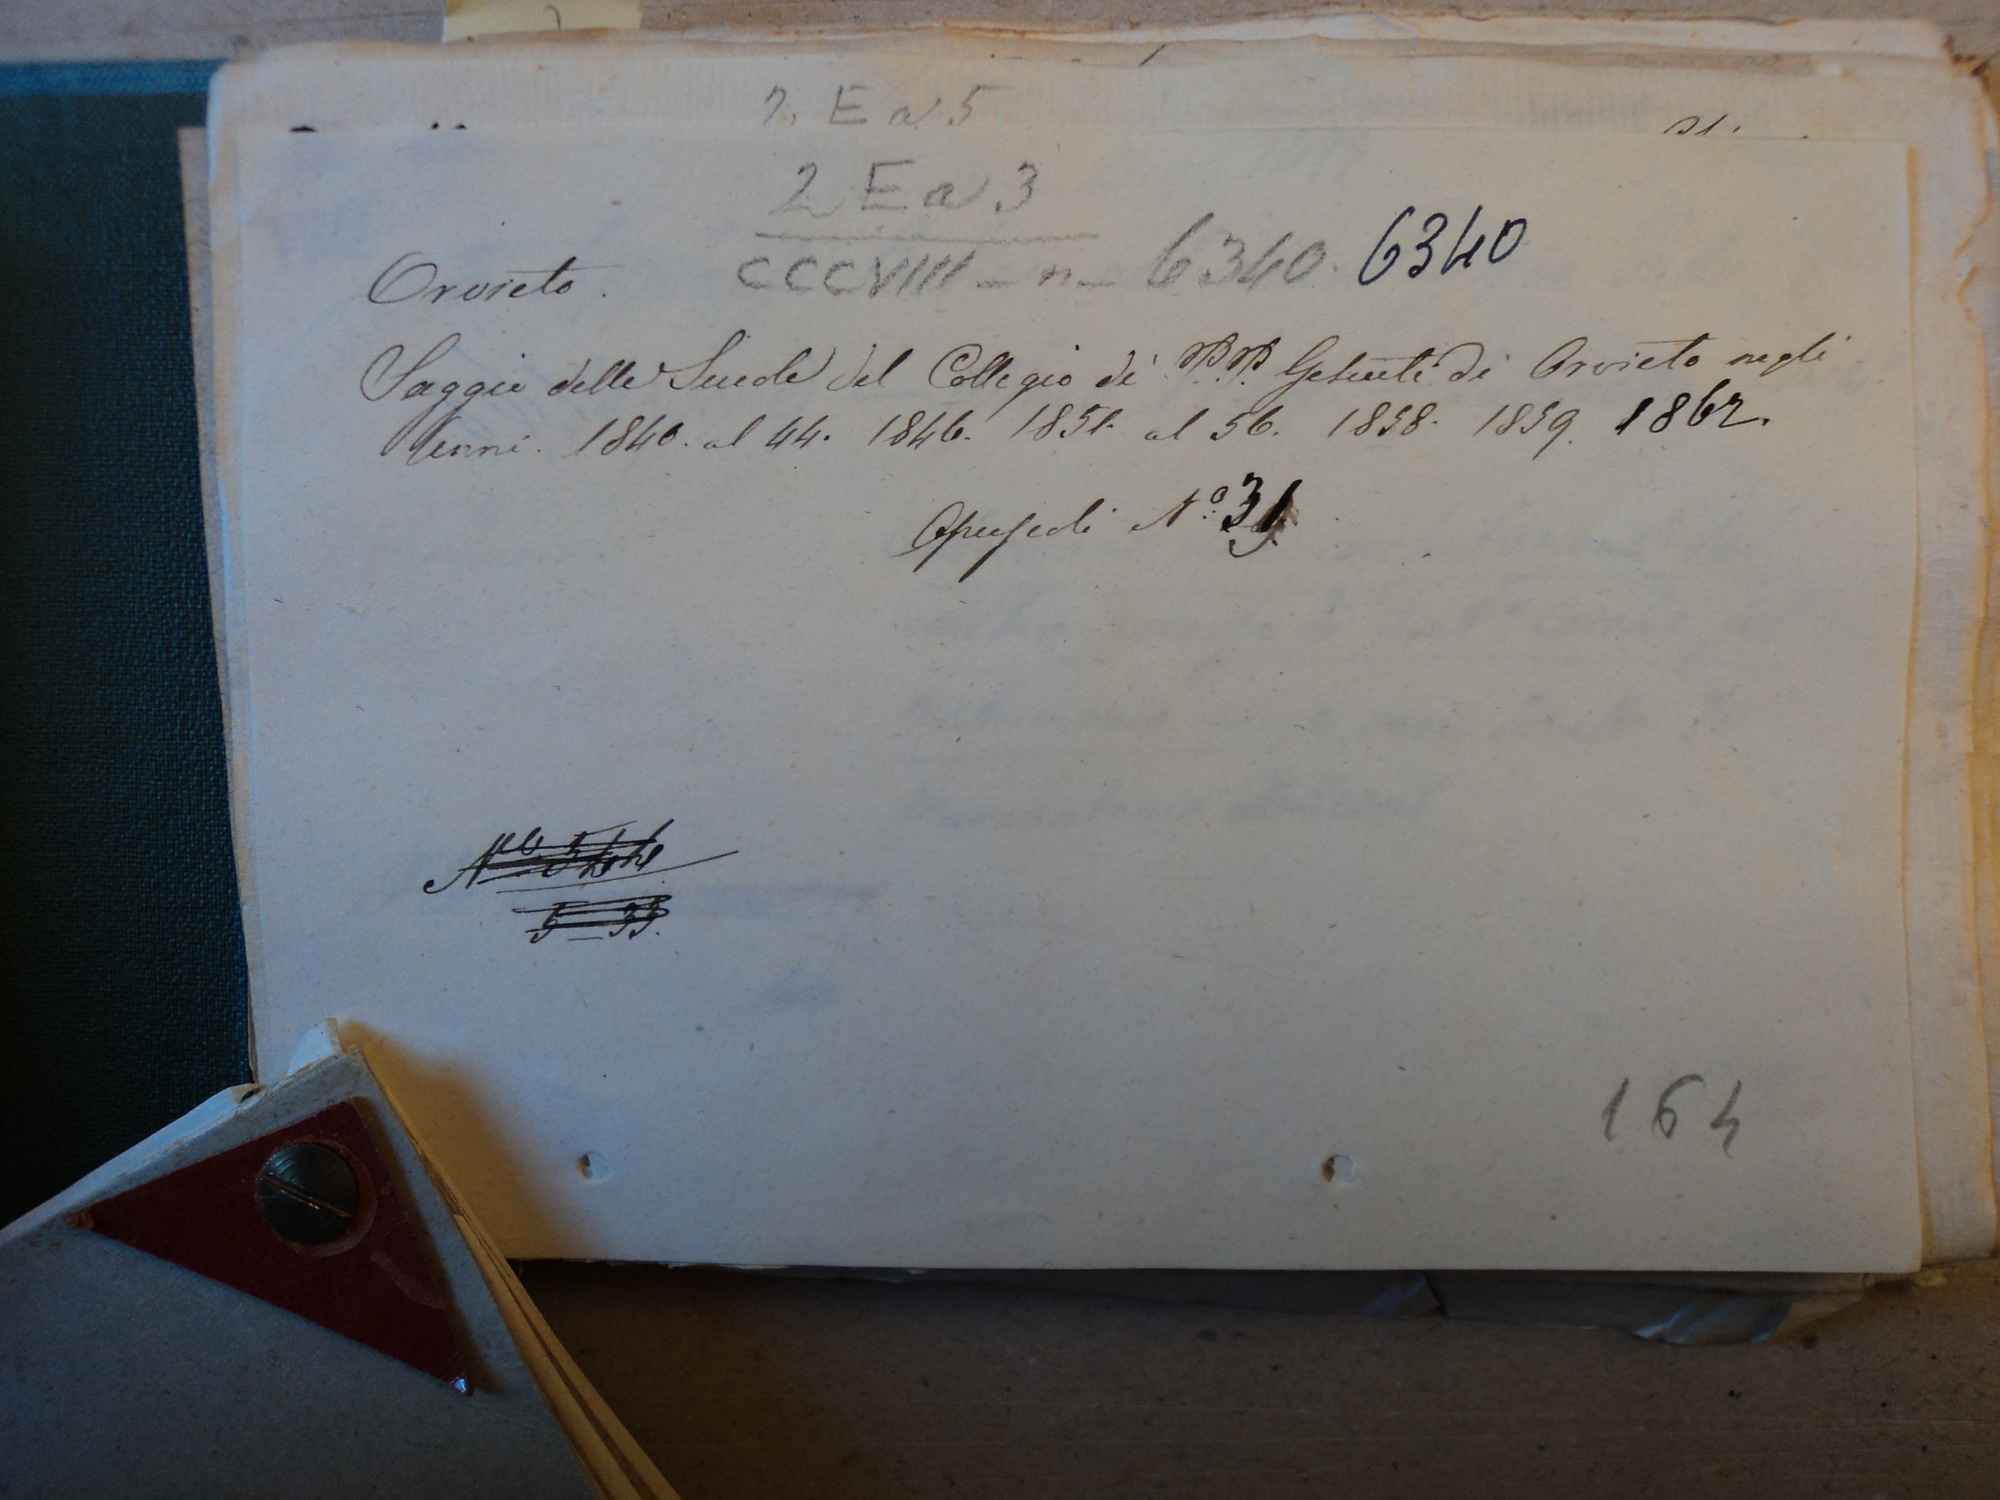 2. E a 5
2 E a 3
Orvieto. CCCVIII - n - 6340. 6340
Saggio delle Scuole del Collegio di PP. Gesuiti di Orvieto negli
Anni. 1840. al 44. 1846. 1851. al 56. 1858. 1859. 1862.
Opuscoli N.o 31
5 35.
164